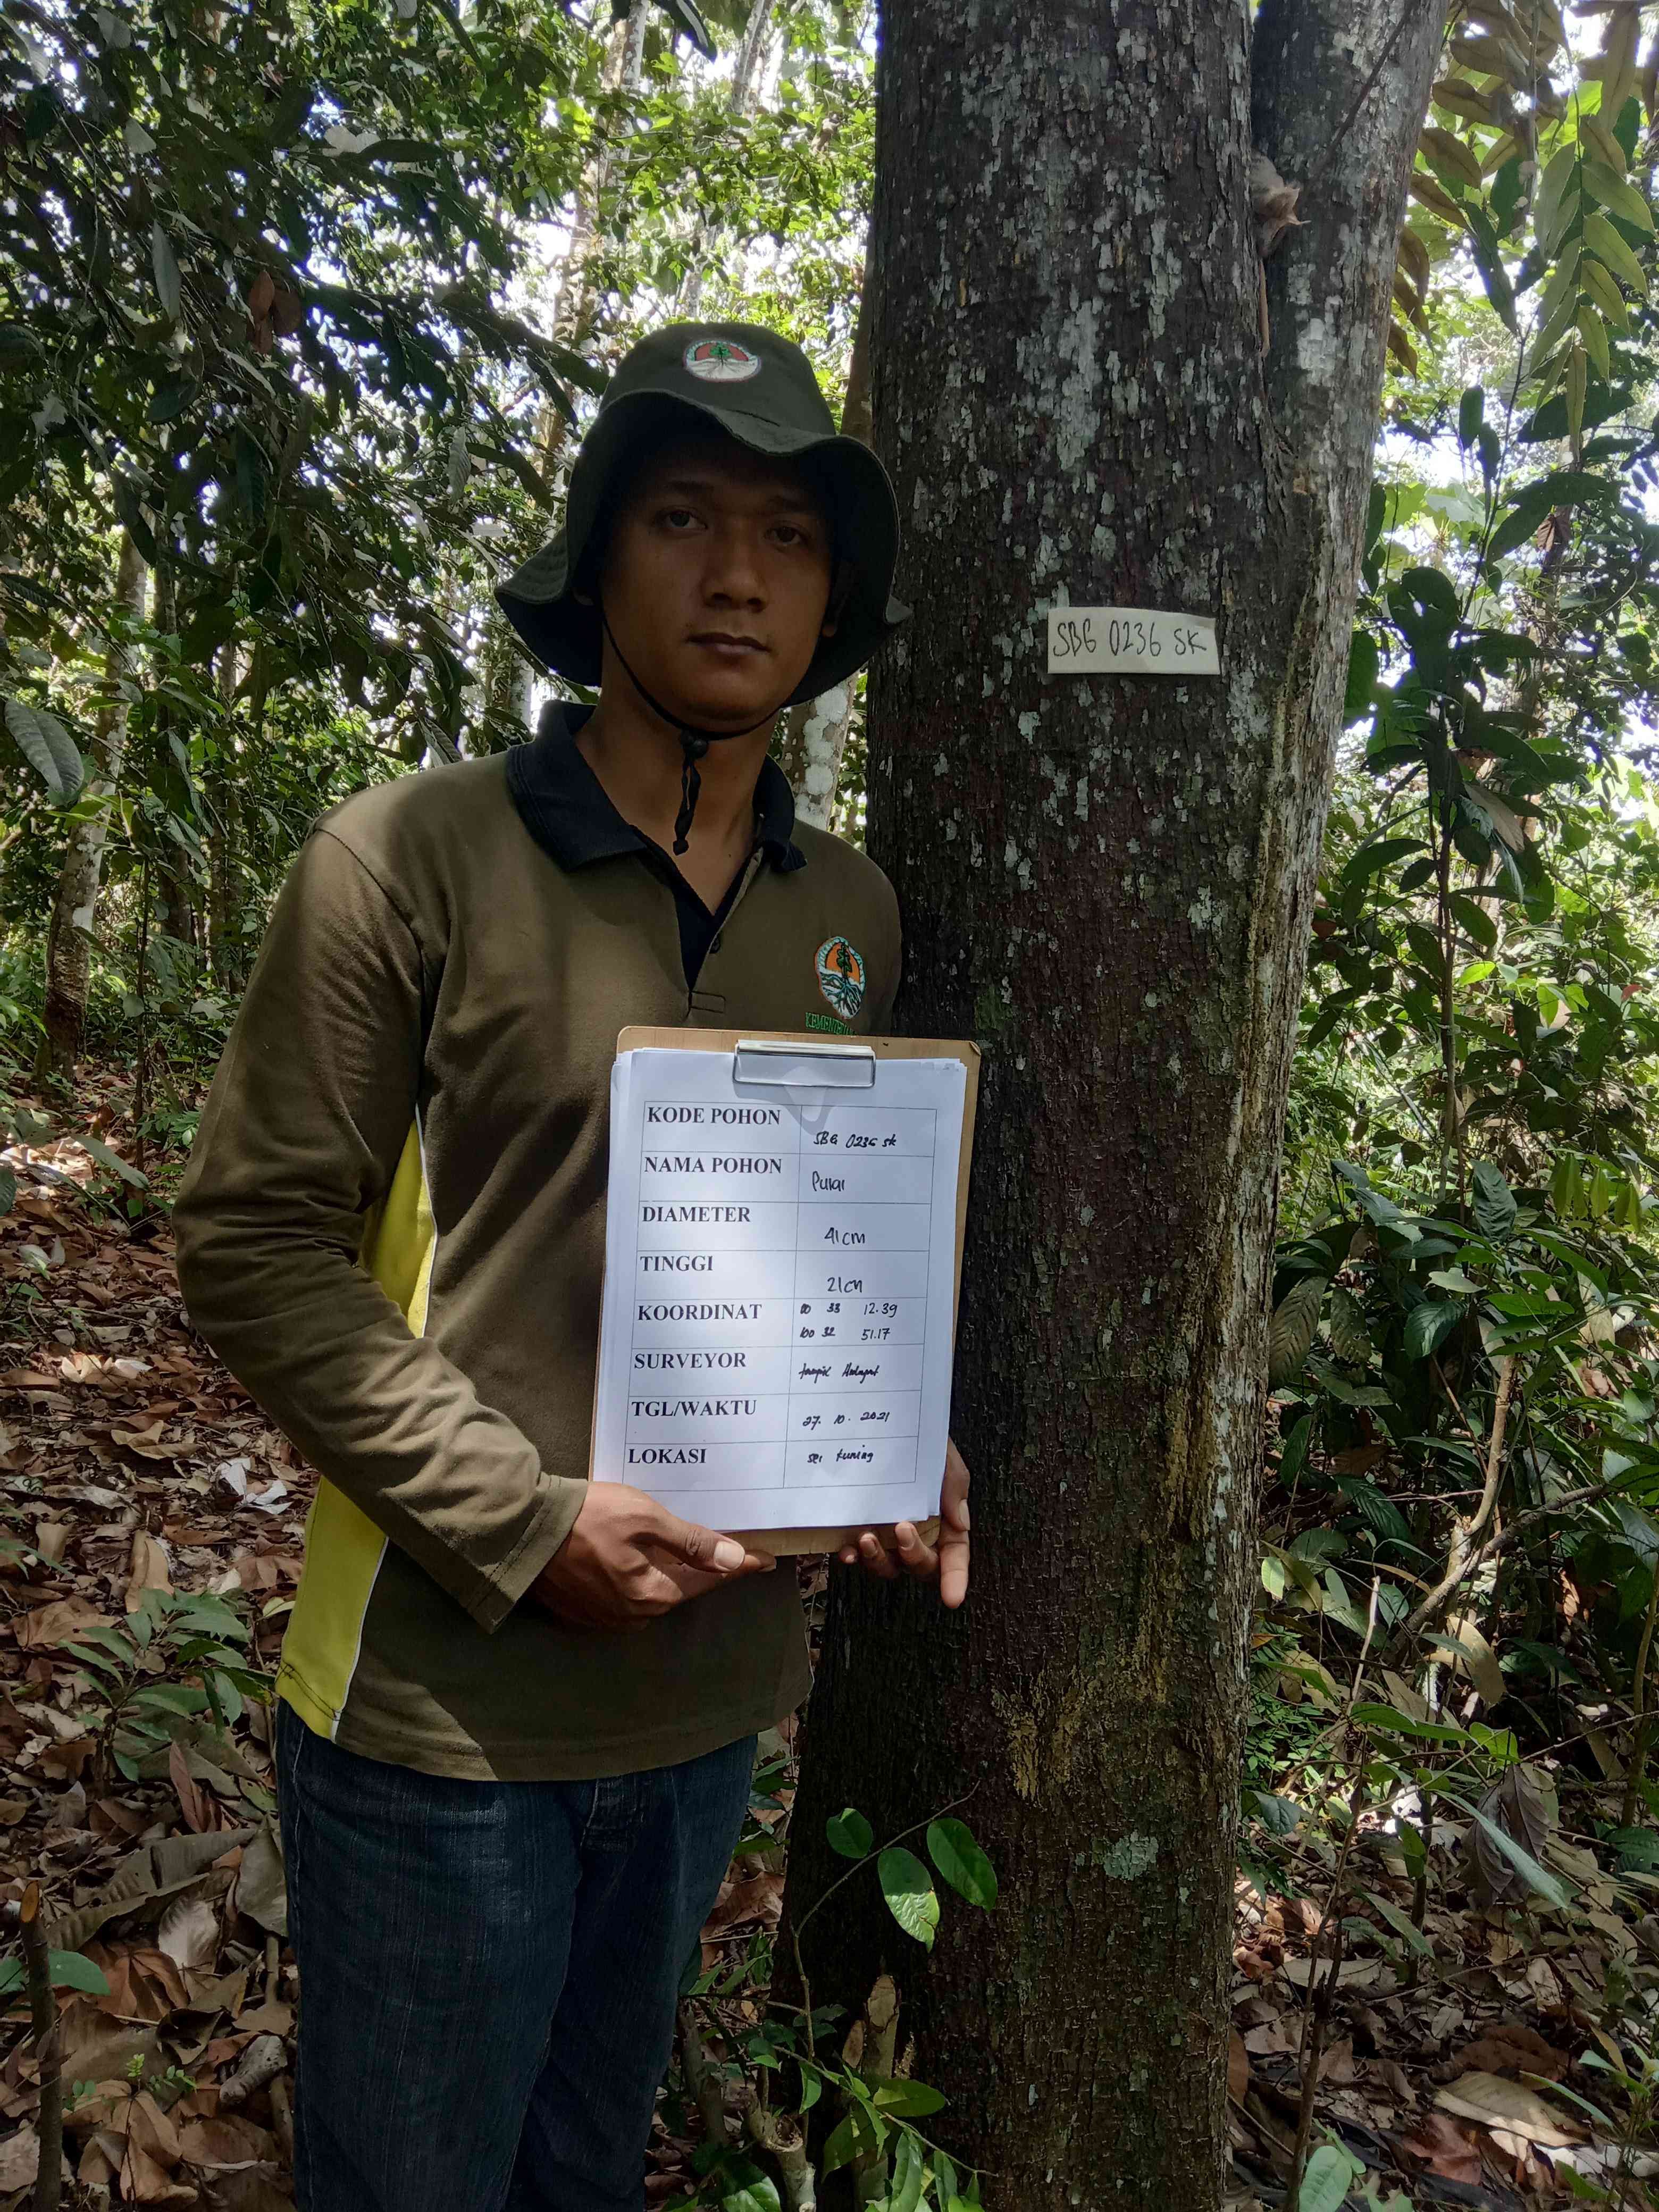 SBG 0236 SK
KEMENTERIAN
KODE POHON
SBG 0236 SK
NAMA POHON
Pulai
DIAMETER
41 cm
TINGGI
21 cm
KOORDINAT
00 33 12.39
100 32 51.17
SURVEYOR
TGL/WAKTU
27. 10. 2021
LOKASI
sei kuning